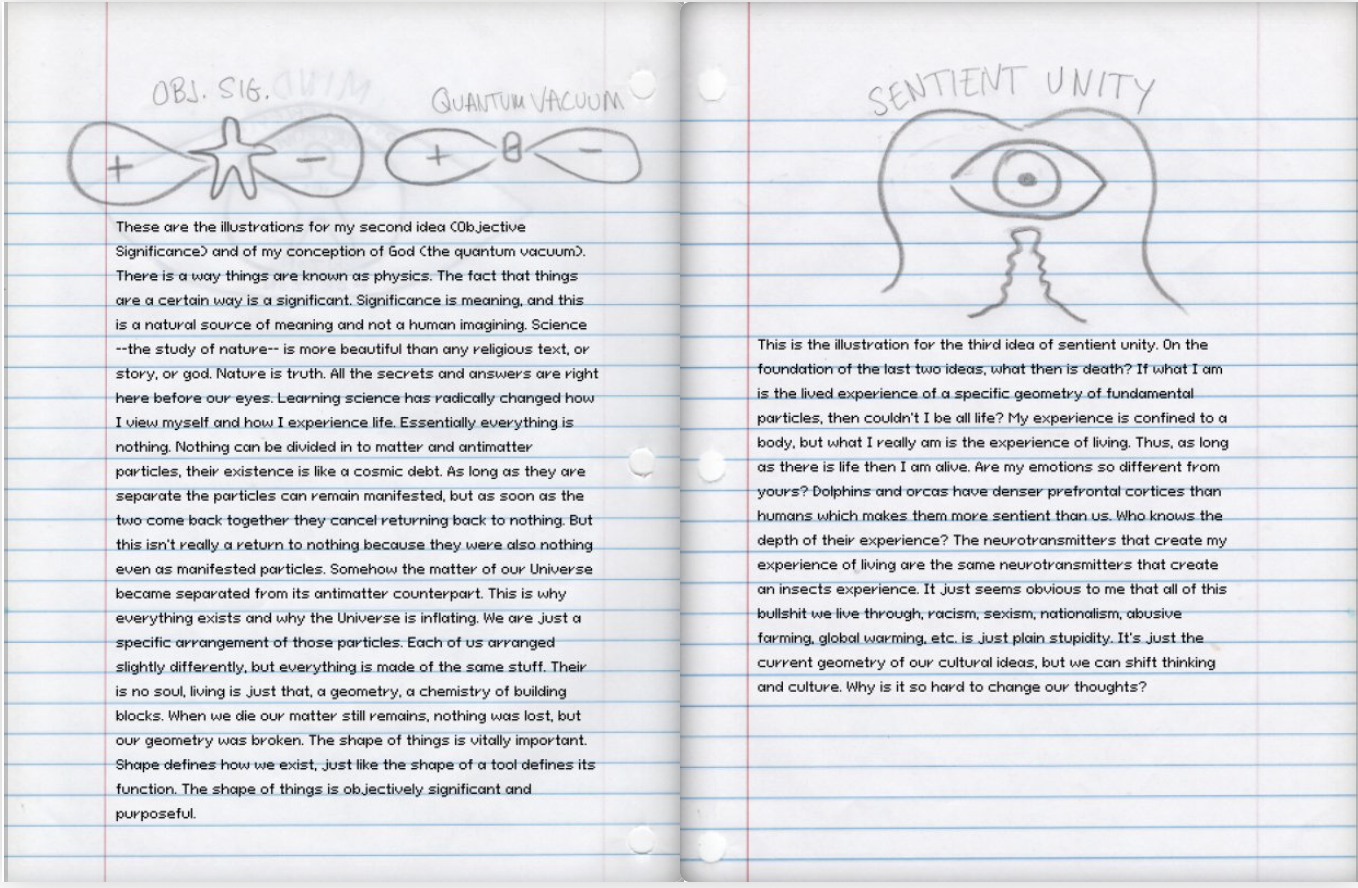 OBJ. SIG.
QUANTUM VACUUM
These are the illustrations for my second idea (Objective
Significance) and of my conception of God (the quantum vacuum).
There is a way things are known as physics. The fact that things
are a certain way is a significant. Significance is meaning, and this
is a natural source of meaning and not a human imagining. Science
--the study of nature-- is more beautiful than any religious text, or
story, or god. Nature is truth. All the secrets and answers are right
here before our eyes. Learning science has radically changed how
I view myself and how I experience life. Essentially everything is
nothing. Nothing can be divided in to matter and antimatter
particles, their existence is like a cosmic debt. As long as they are
separate the particles can remain manifested, but as soon as the
two come back together they cancel returning back to nothing. But
this isn't really a return to nothing because they were also nothing
even as manifested particles. Somehow the matter of our Universe
became separated from its antimatter counterpart. This is why
everything exists and why the Universe is inflating. We are just a
specific arrangement of those particles. Each of us arranged
slightly differently, but everything is made of the same stuff. Their
is no soul, living is just that, a geometry, a chemistry of building
blocks. When we die our matter still remains, nothing was lost, but
our geometry was broken. The shape of things is vitally important.
Shape defines how we exist, just like the shape of a tool defines its
function. The shape of things is objectively significant and
purposeful.
SENTIENT UNITY
This is the illustration for the third idea of sentient unity. On the
foundation of the last two ideas, what then is death? If what I am
is the lived experience of a specific geometry of fundamental
particles, then couldn't I be all life? My experience is confined to a
body, but what I really am is the experience of living. Thus, as long
as there is life then I am alive. Are my emotions so different from
yours? Dolphins and orcas have denser prefrontal cortices than
humans which makes them more sentient than us. Who knows the
depth of their experience? The neurotransmitters that create my
experience of living are the same neurotransmitters that create
an insects experience. It just seems obvious to me that all of this
bullshit we live through, racism, sexism, nationalism, abusive
farming, global warming, etc. is just plain stupidity. It's just the
current geometry of our cultural ideas, but we can shift thinking
and culture. Why is it so hard to change our thoughts?